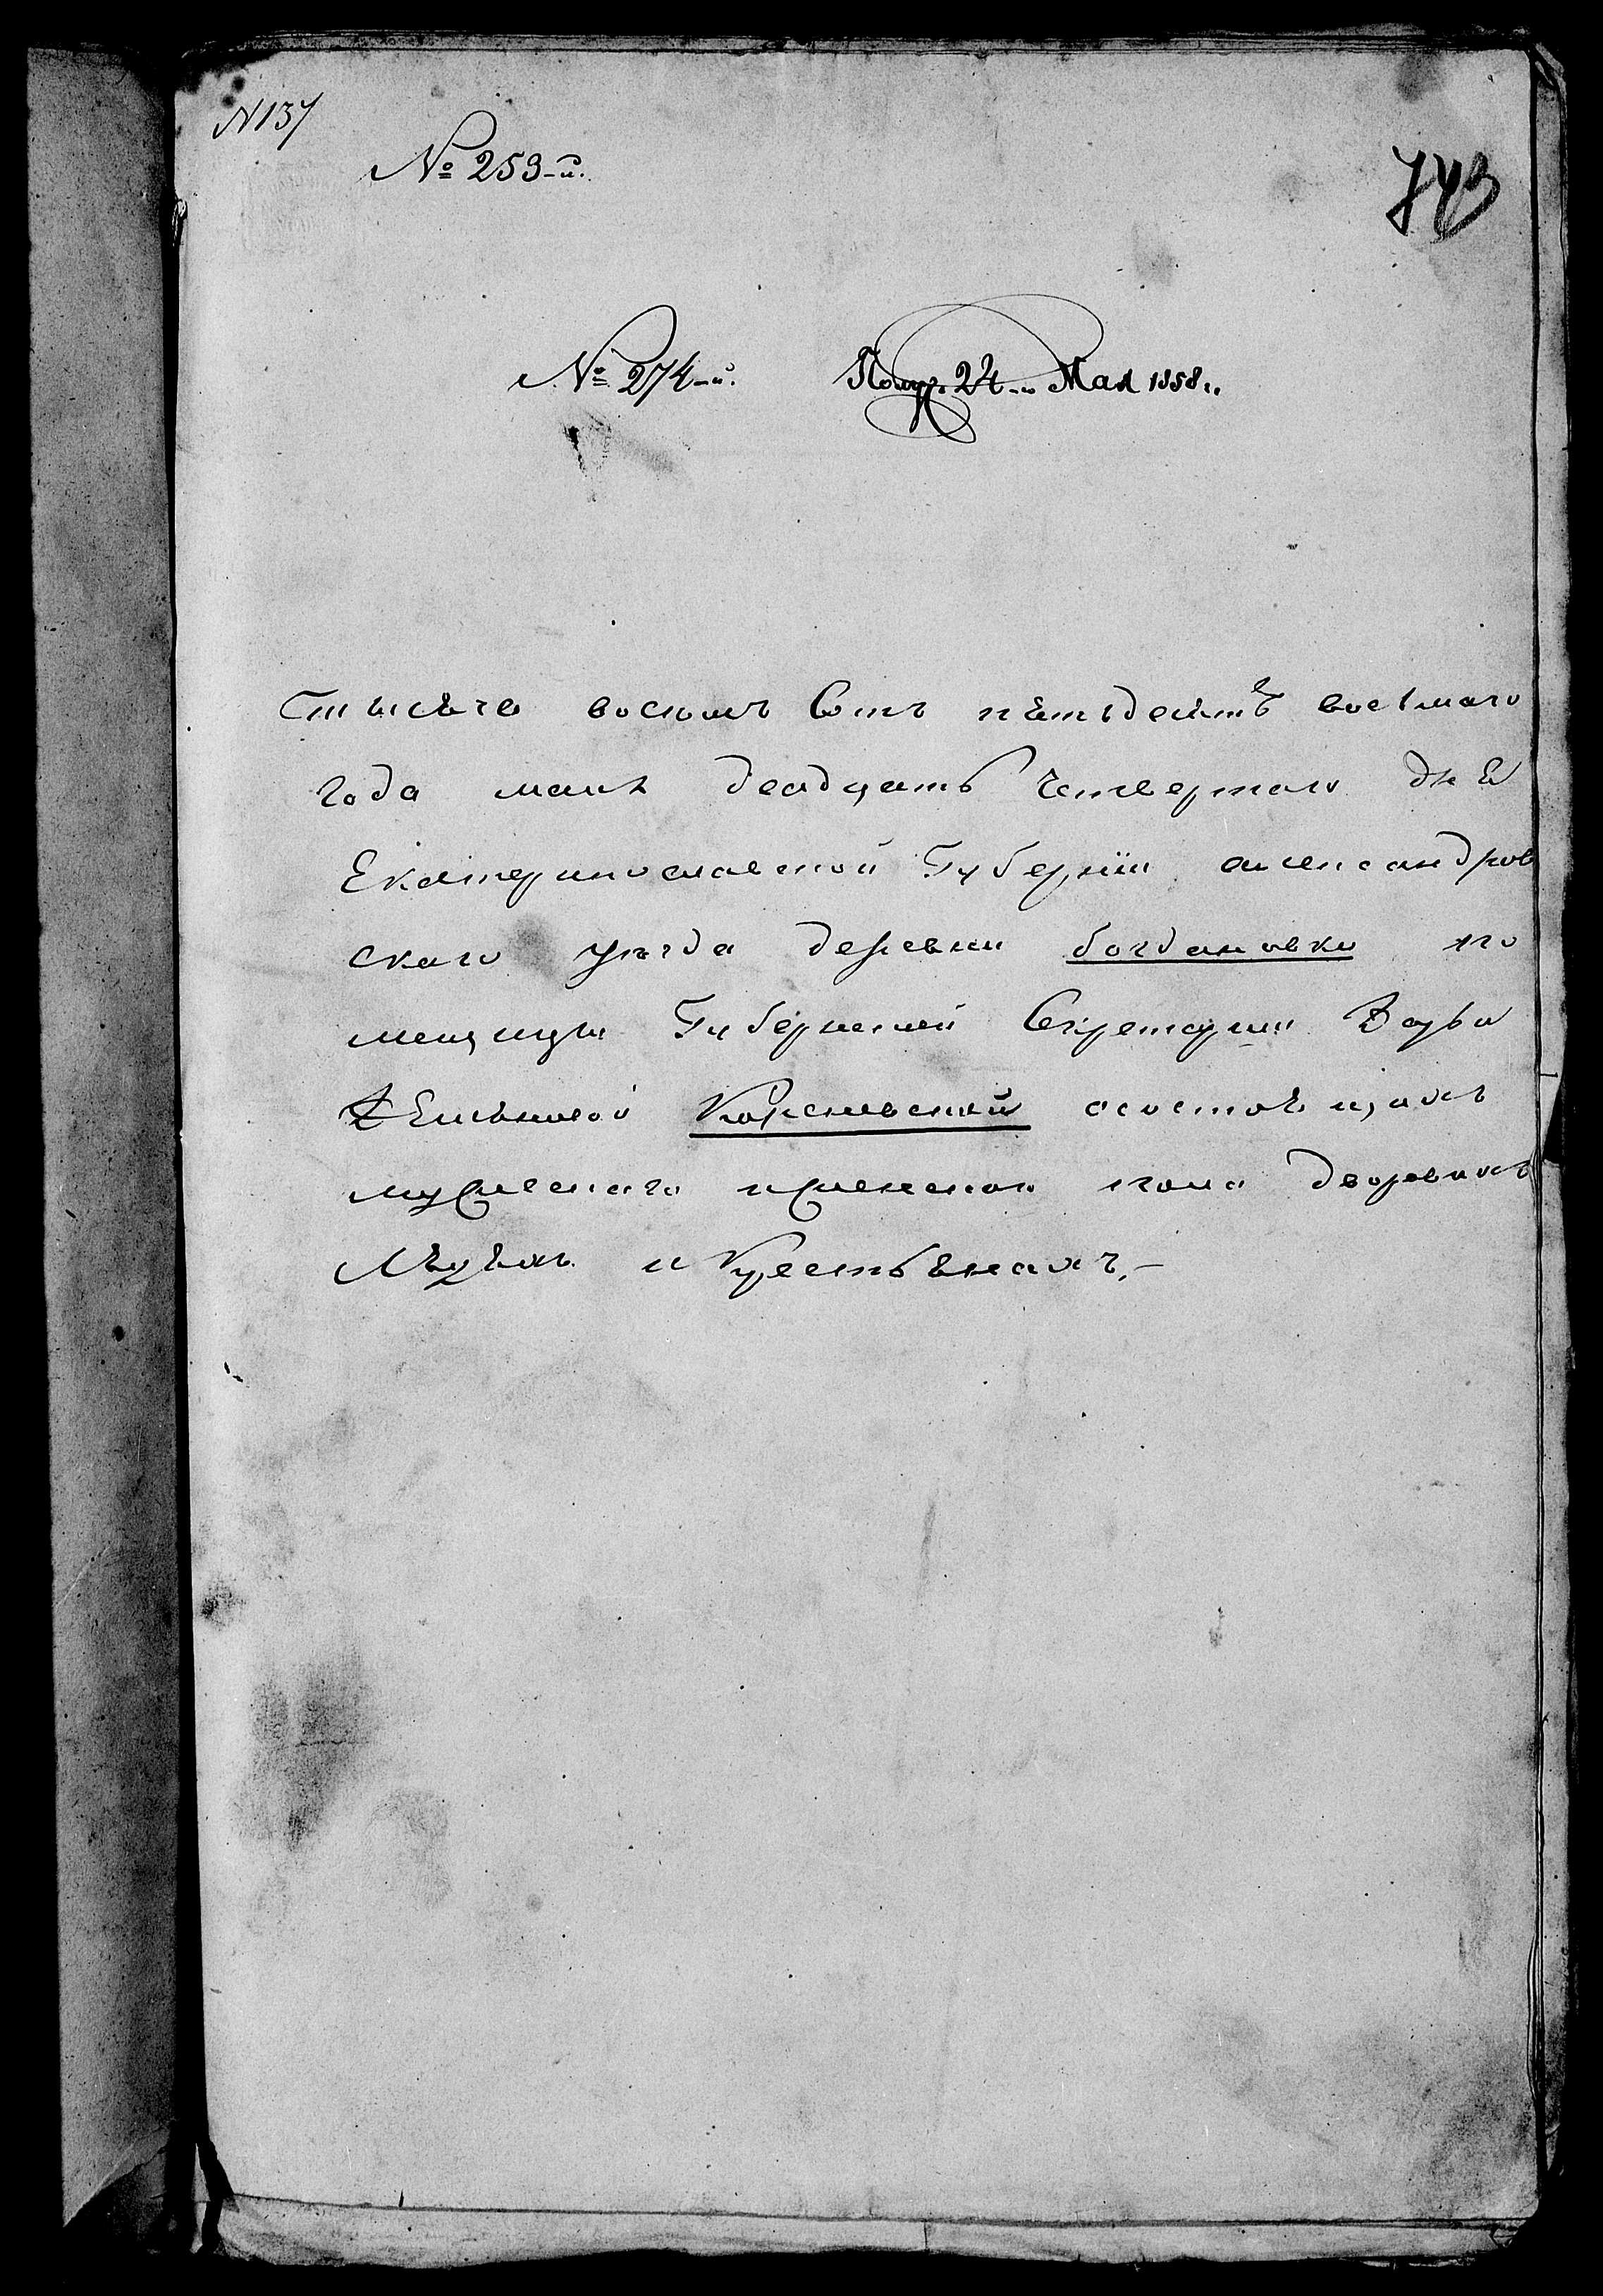 N 137
№ 253-й.
743
№ 274-й. Получ. 24-го Мая 1858 г.
Тысеча восемъ Сотъ петьдесетъ восьмаго
года маия двадцать Четвертаго дня
Екатеринославской Губернии александров
скаго уезда деревни богдановки по
мещицы Губернской Секретарши
Корсельской о состоящихъ
мужескаго и женскаго пола дворовыхъ
людехъ и Крестьянахъ.-